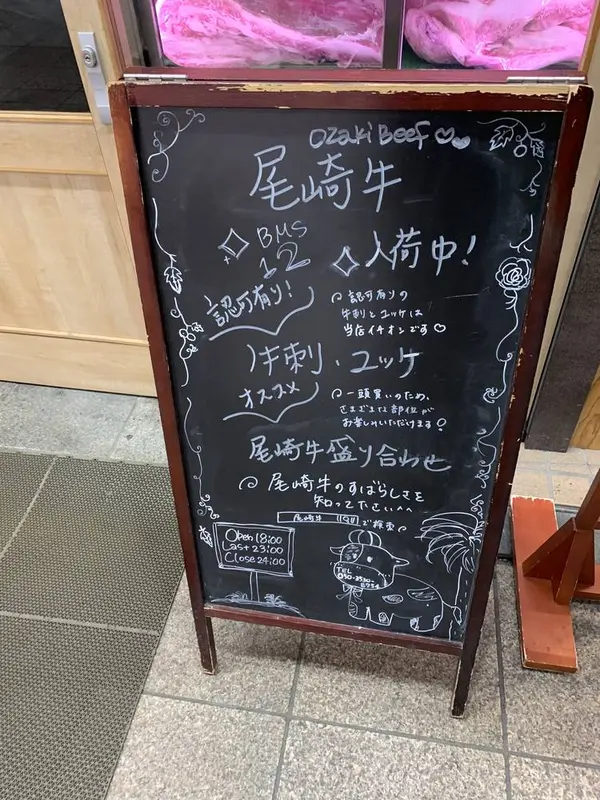 Ozaki Beef
尾崎牛
BMS
12
入荷中!
認可有り!
認可有りの
牛刺とユッケは
当店イチオシです
牛刺・ユッケ
オススメ
一頭買いのため、
さまざまな部位が
お楽しみいただけます!
尾崎牛盛り合わせ
尾崎牛のすばらしさを
知って下さい^^
尾崎牛
で検索
Open 18:00
Last 23:00
Close 24:00
TEL